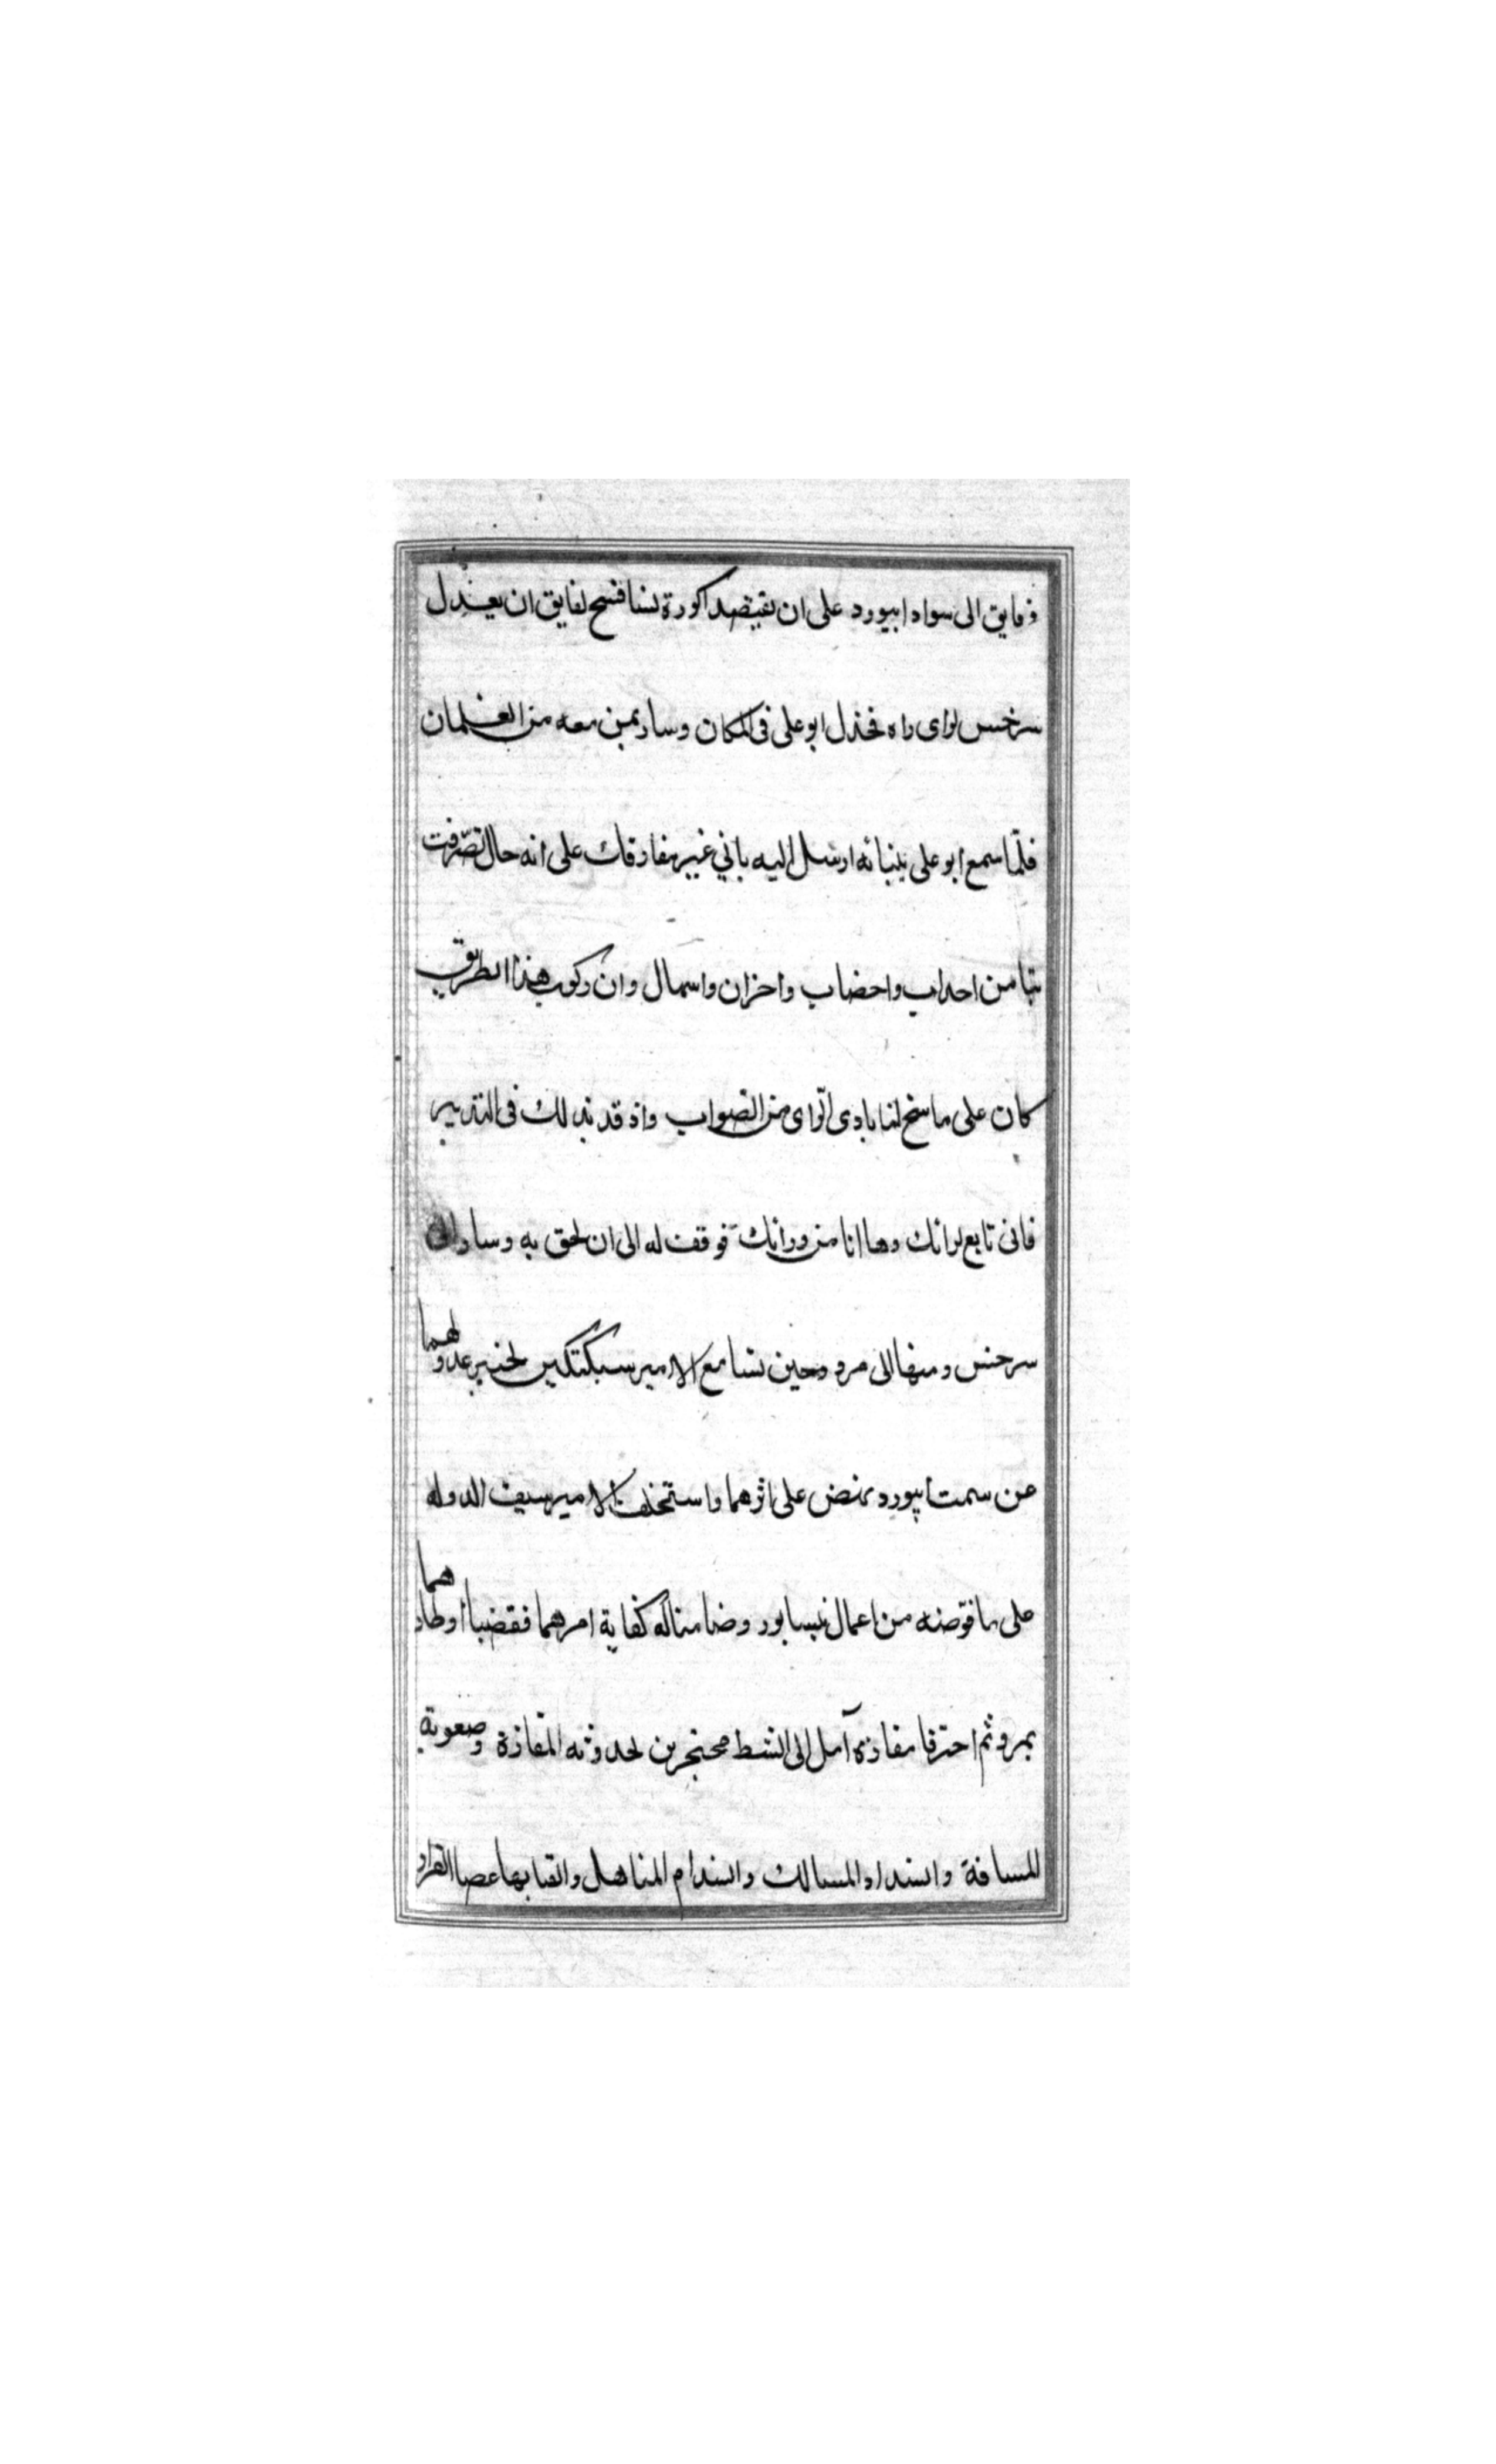 وفايق الى سواد ابيورد على ان يقصد كورة نسا فسح لفايق ان يعدل
سرخس لراى راه فخذل ابو على فى المكان وسار بمن معه من الغلمان
فلما سمع ابو على بنبائه ارسل اليه بانى غير مفارقك على انه حال تصرفت
بنا من احداب واحضاب واحزان واسمال وان ركوب هذا الطريق
كان على ما سنح لنا بادى الراى من الصواب واذ قد بدا لك فى التدبير
فانى تابع لرائك وها انا من ورائك فوقف له الى ان لحق به وسار الى
سرخس ومنها الى مرو وحين تسامع الامير سبكتكين لخبر عدولهما
عن سمت ابيورد نهض على اثرهما واستخلف الامير سيف الدوله
على ما فوضه من اعمال نيسابور وضامنا له كفاية امرهما فقضيا اوطارهما
بمرو ثم اخترقا مفازة آمل الى الشط متحجرين لحدوثه المفازة وصعوبة
المسافة وانسداد المسالك وانسدام المناهل والقيا بها عصا القرار